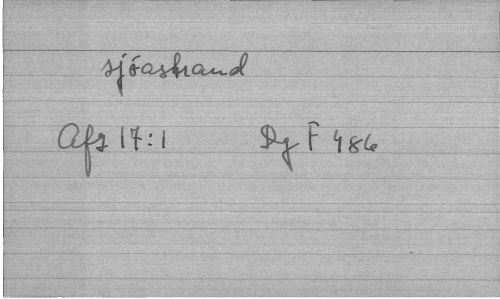 sjöastrand
Afz 17:1 Dg F 486